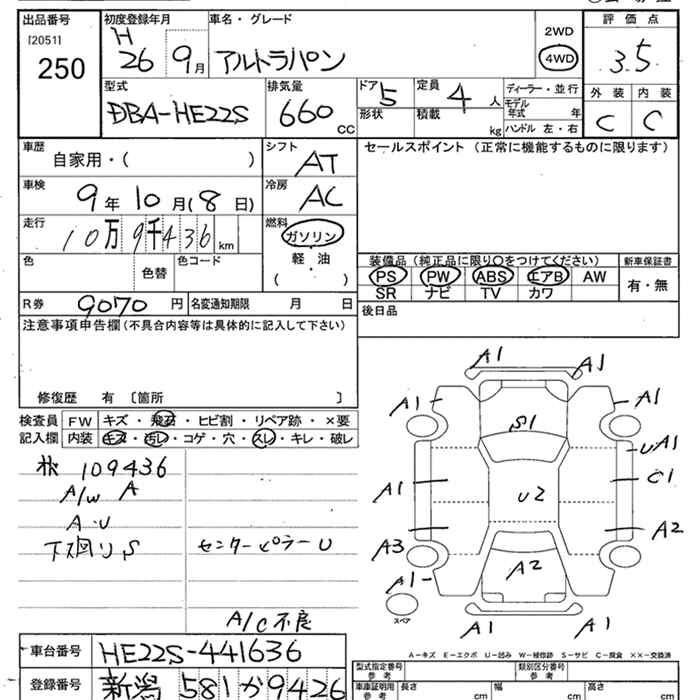 出品番号 初度登録年月 車名・グレード 評価点
[2051] H 2WD
250 26 9月 アルトラパン 4WD 3.5
型式 排気量 ドア 5 定員 4人 ディーラー・並行 外装 内装
DBA-HE22S 660 CC 形状 積載 kg モデル年式 年 C C
ハンドル 左・右
車歴 自家用・( ) シフト AT セールスポイント (正常に機能するものに限ります)
車検 9年10月(8日) 冷房 AC
走行 10万9千436km 燃料 ガソリン
軽・油
( )
色 色替 色コード 装備品 (純正品に限り○をつけてください) 新車保証書
PS PW ABS エアB AW 有・無
SR ナビ TV カワ
R券 9070円 名変通知期限 月 日 後日品
注意事項申告欄(不具合内容等は具体的に記入して下さい)
修復歴 有 〔箇所 〕
検査員 FW キズ・飛石・ヒビ割・リペア跡・×要
記入欄 内装 キズ・汚レ・コゲ・穴・スレ・キレ・破レ
109436
A/W A
A・U
下回リS センターピラーU
A/C不良
A1 A1
A1 S1 A1
UA1
A1 U2 C1
A3 A2
A1 A2
スペア
A1 A1
A-キズ E-エクボ U-凹み W-補修跡 S-サビ C-腐食 ××-交換済
車台番号 HE22S-441636
登録番号 新潟 581か9426
型式指定番号 参考 類別区分番号 参考
車庫証明用 参考 長さ cm 幅 cm 高さ cm